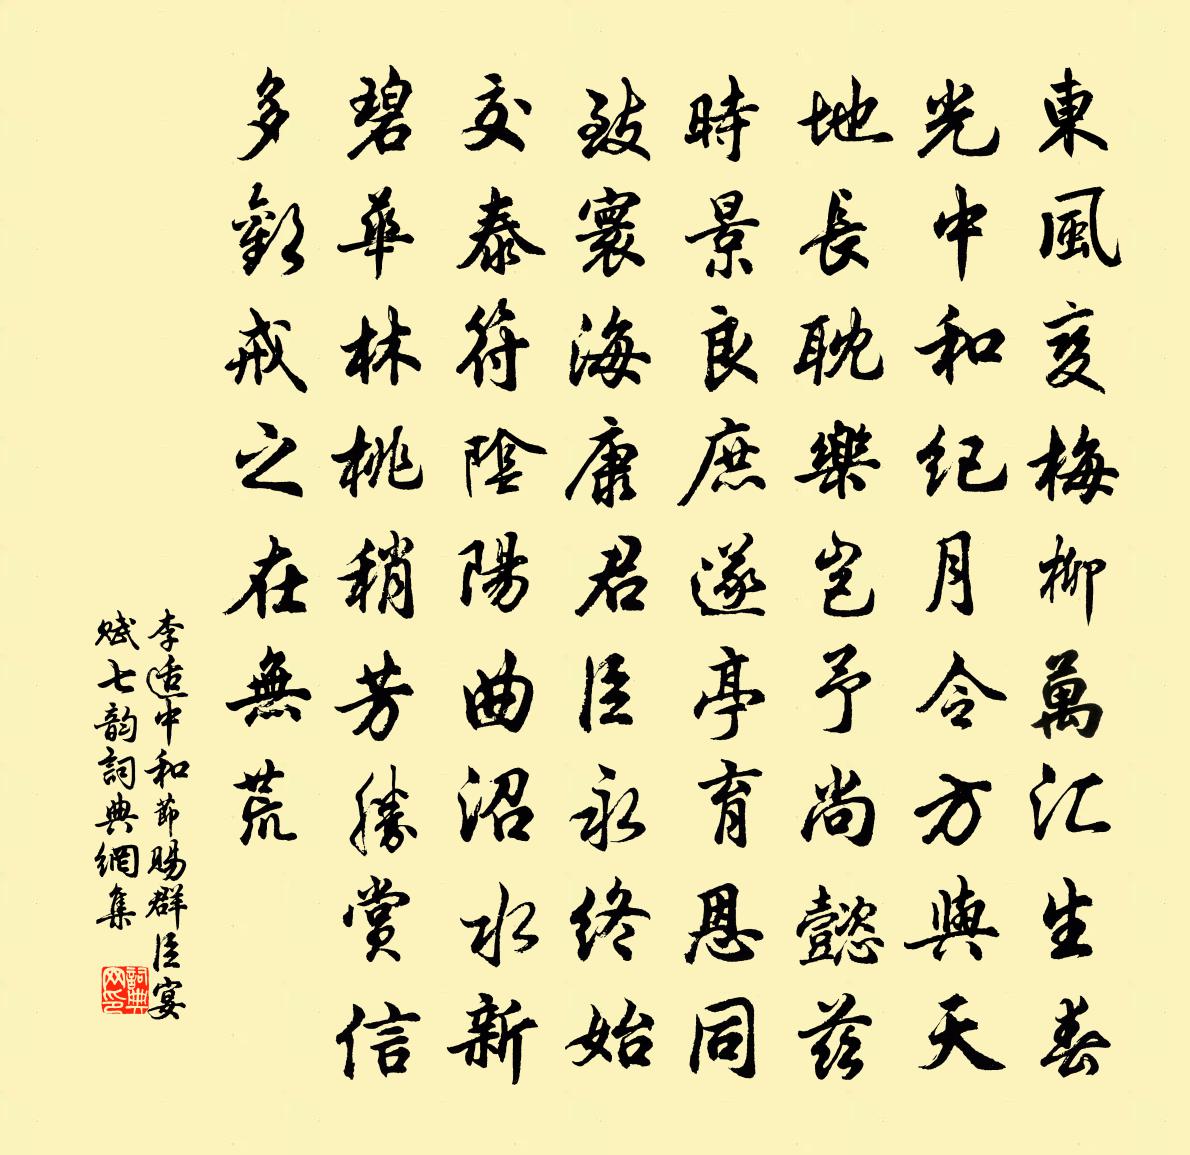 東風變梅柳萬汇生春
光中和紀月令方與天
地長耽樂豈予尚懿茲
時景良庶遂亭育恩同
致寰海康君臣永終始
交泰符陰陽曲沼水新
碧華林桃稍芳勝賞信
多歡戒之在無荒
李适中和節賜群臣宴
賦七韵詞典網集
詞典
网印